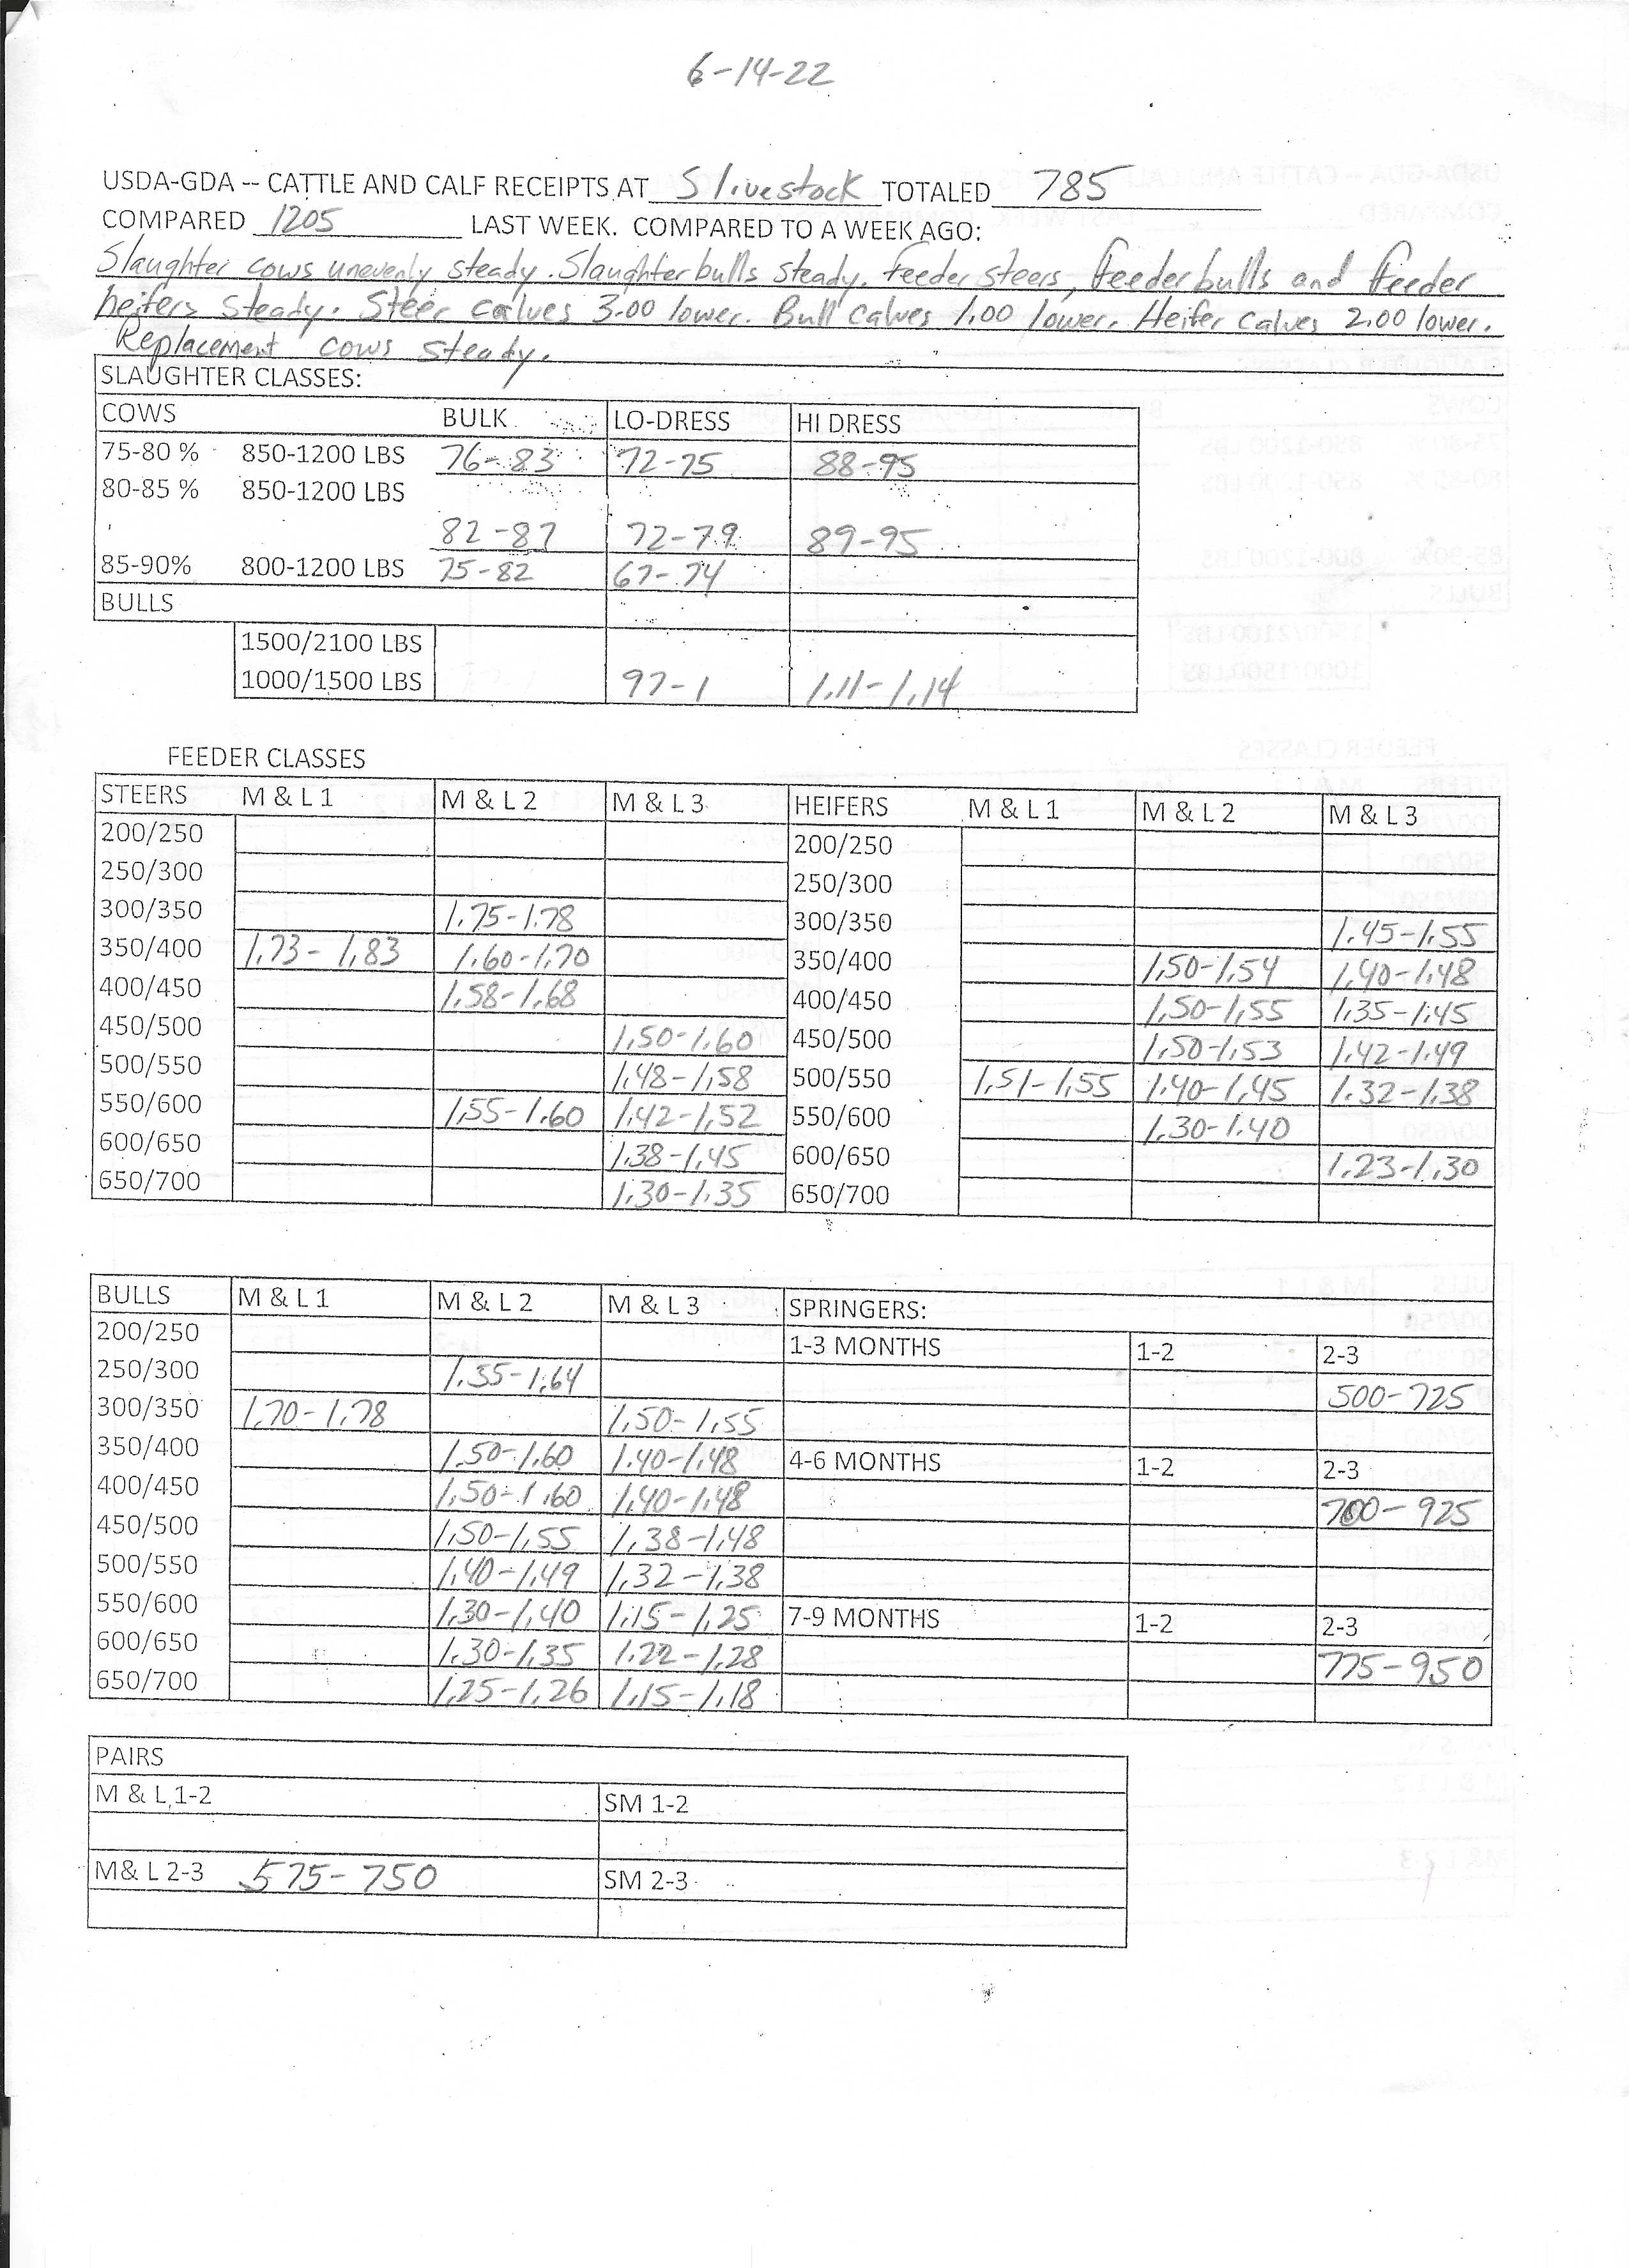 6-14-22
USDA-GDA -- CATTLE AND CALF RECEIPTS AT S livestock TOTALED 785
COMPARED 1205 LAST WEEK. COMPARED TO A WEEK AGO:
Slaughter cows unevenly steady. Slaughter bulls steady. Feeder steers, feeder bulls and feeder
heifers steady. Steer calves 3.00 lower. Bull calves 1.00 lower. Heifer calves 2.00 lower.
Replacement cows steady.
SLAUGHTER CLASSES:
COWS BULK LO-DRESS HI DRESS
75-80 % 850-1200 LBS 76-83 72-75 88-95
80-85 % 850-1200 LBS
82-87 72-79 89-95
85-90% 800-1200 LBS 75-82 67-74
BULLS
1500/2100 LBS
1000/1500 LBS 97-1 1.11-1.14
FEEDER CLASSES
STEERS M & L 1 M & L 2 M & L 3 HEIFERS M & L 1 M & L 2 M & L 3
200/250 200/250
250/300 250/300
300/350 1.75-1.78 300/350 1.45-1.55
350/400 1.73-1.83 1.60-1.70 350/400 1.50-1.54 1.40-1.48
400/450 1.58-1.68 400/450 1.50-1.55 1.35-1.45
450/500 1.50-1.60 450/500 1.50-1.53 1.42-1.49
500/550 1.48-1.58 500/550 1.51-1.55 1.40-1.45 1.32-1.38
550/600 1.55-1.60 1.42-1.52 550/600 1.30-1.40
600/650 1.38-1.45 600/650 1.23-1.30
650/700 1.30-1.35 650/700
BULLS M & L 1 M & L 2 M & L 3 SPRINGERS:
200/250 1-3 MONTHS 1-2 2-3
250/300 1.55-1.64 500-725
300/350 1.70-1.78 1.50-1.55
350/400 1.50-1.60 1.40-1.48 4-6 MONTHS 1-2 2-3
400/450 1.50-1.60 1.40-1.48 700-925
450/500 1.50-1.55 1.38-1.48
500/550 1.40-1.49 1.32-1.38
550/600 1.30-1.40 1.15-1.25 7-9 MONTHS 1-2 2-3
600/650 1.30-1.35 1.22-1.28 775-950
650/700 1.25-1.26 1.15-1.18
PAIRS
M & L 1-2 SM 1-2
M& L 2-3 575-750 SM 2-3